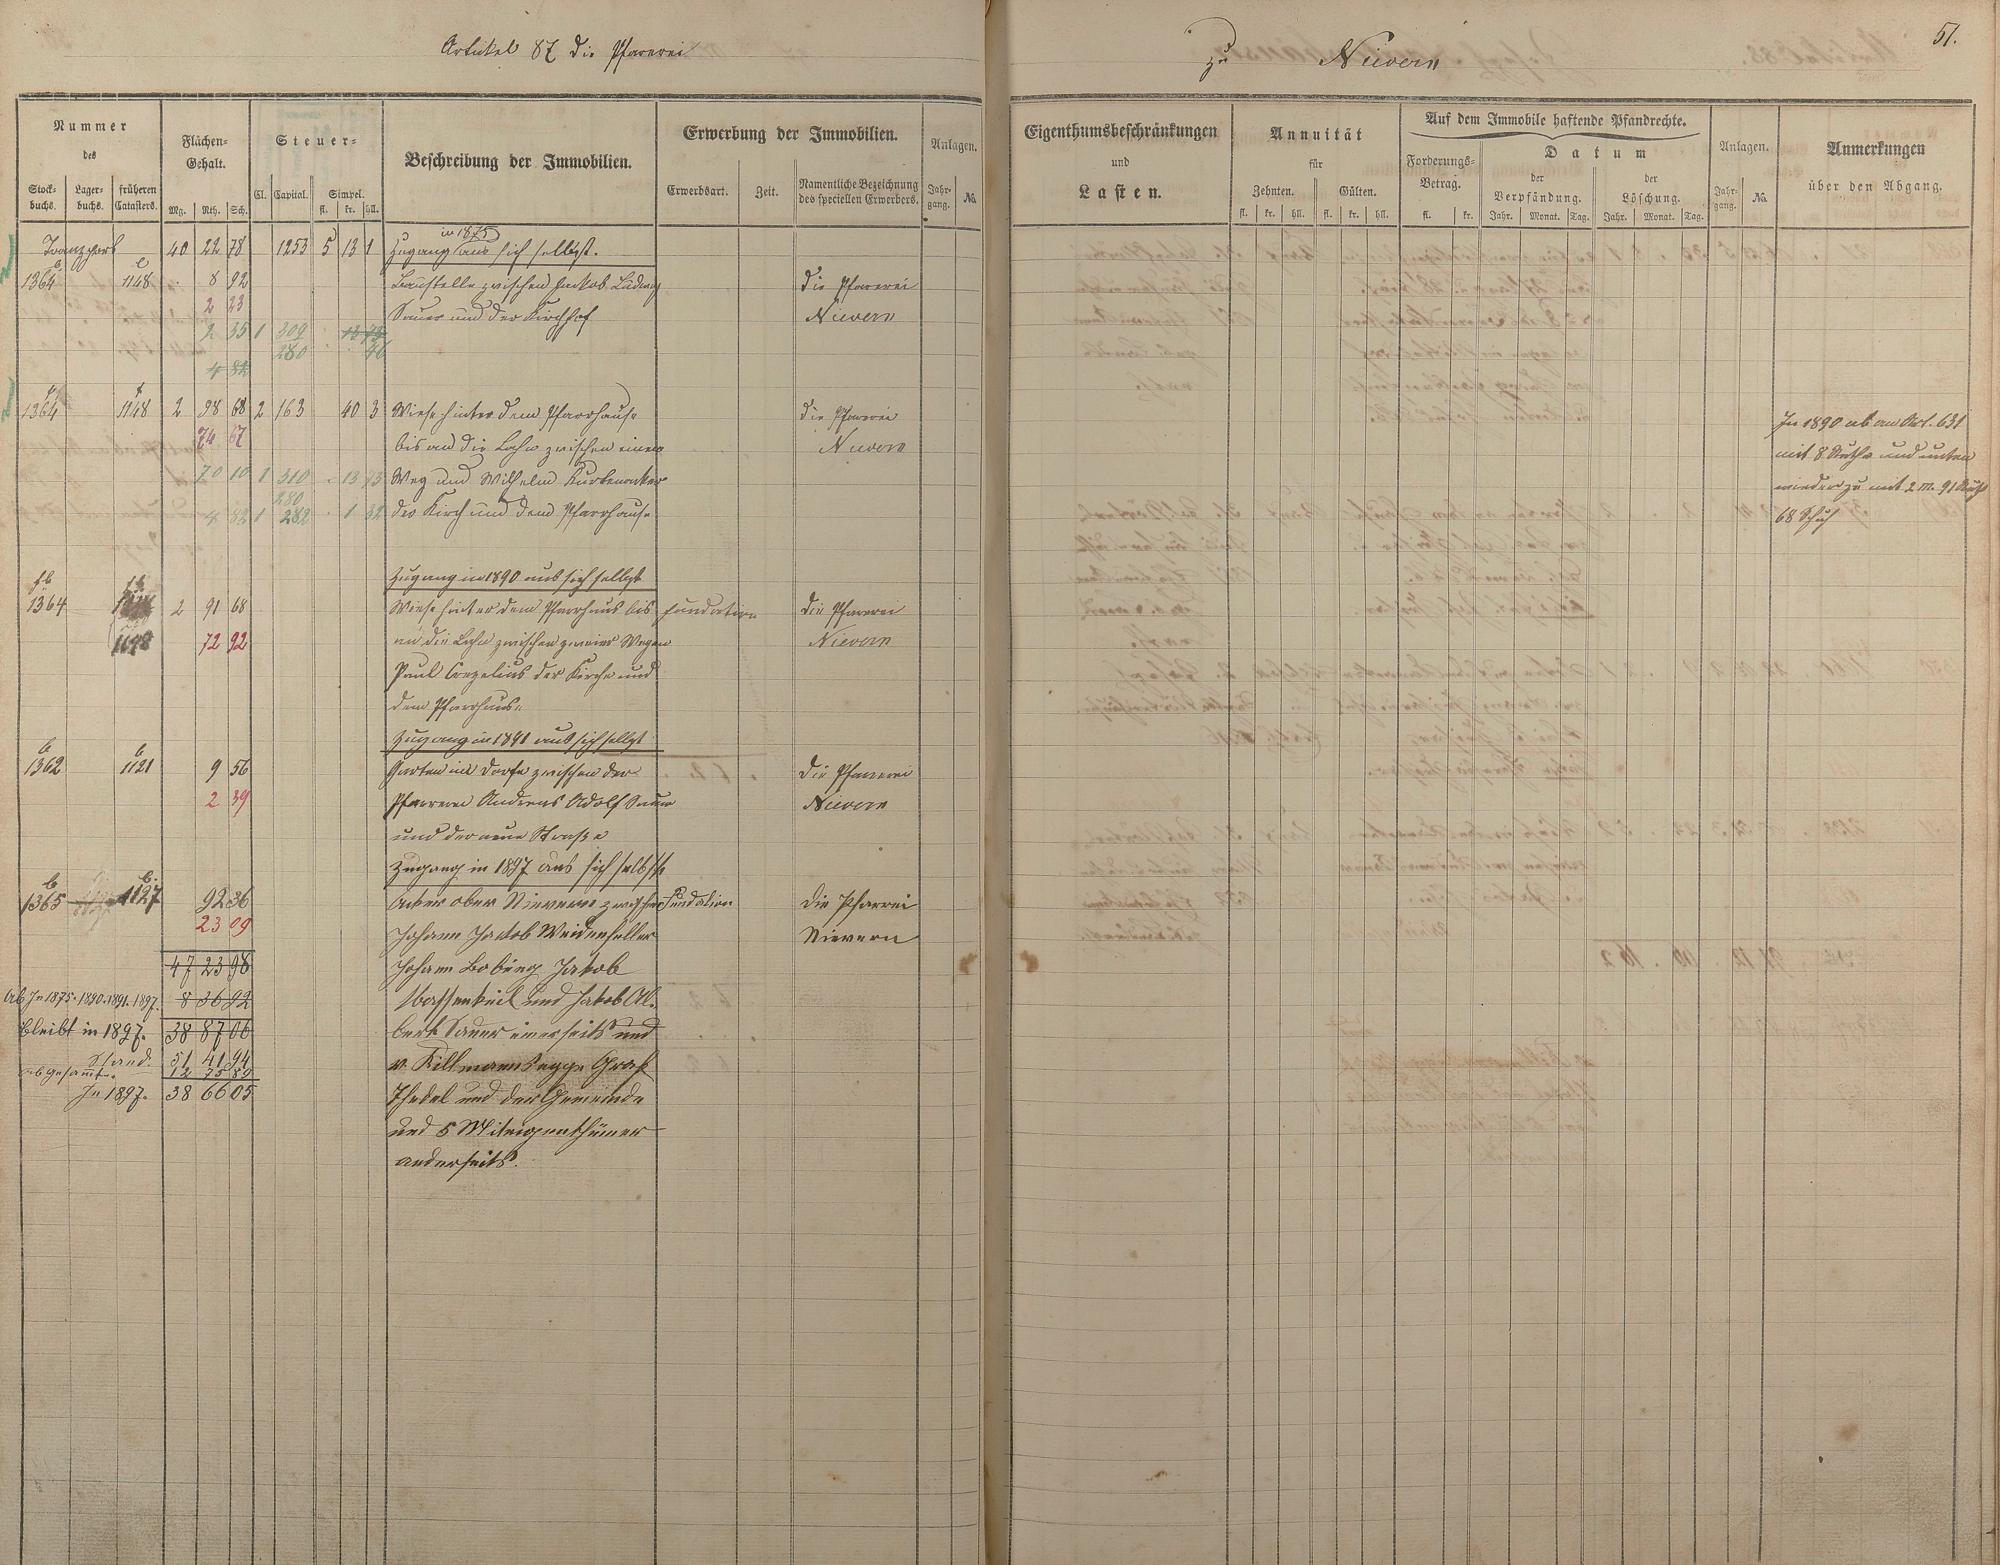 Artikel 87 die Pfarrei
zu Nievern
51.
Nummer des
Stock-buchs. Lager-buchs. früheren Catasters.
Flächen-Gehalt.
Mg. Rth. Sch.
Steuer-
Cl. Capital. Simpel.
fl. kr. hll.
Beschreibung der Immobilien.
Erwerbung der Immobilien.
Erwerbsart. Zeit. Namentliche Bezeichnung des speciellen Erwerbers.
Anlagen.
Jahr-gang. No.
Eigenthumsbeschränkungen und Lasten.
Annuität für
Zehnten. Gülten.
fl. kr. hll. fl. kr. hll.
Auf dem Immobile haftende Pfandrechte.
Forderungs-Betrag.
fl. kr.
Datum
der Verpfändung. der Löschung.
Jahr. Monat. Tag. Jahr. Monat. Tag.
Anlagen.
Jahr-gang. No.
Anmerkungen über den Abgang.
in 1875
Transport 40 22 78 1253 5 13 1 Zugang aus sich selbst.
1364 e 1148 e 8 92 Baustelle zwischen Jakob Ludwig die Pfarrei
2 23 Sauer und der Kirchhof Nievern
2 35 1 309 13 73
280 46
4 82
1364 f 1148 2 98 68 2 163 40 3 Wiese hinter dem Pfarrhause die Pfarrei
74 67 bis an die Lahn zwischen einem Nievern
70 10 1 310 13 73 Weg und Wilhelm
280
4 82 1 282 1 32 der Kirch und dem Pfarrhause
In 1890 ab an Art. 631
mit 8 Ruth und unten
wieder zu mit 2 M. 91 Ruth
68 Schuh
Zugang in 1890 aus sich selbst
1364 fb 2 91 68 Wiese hinter dem Pfarrhaus bis Fundation die Pfarrei
1148 72 92 an die Lahn zwischen zweier Wegen Nievern
Paul der Kirche und
dem Pfarrhaus
Zugang in 1891 aus sich selbst
1362 b 1121 b 9 56 Garten im Dorfe zwischen der die Pfarrei
2 39 Pfarrerei Andreas Adolf Sauer Nievern
und der neue Straße
Zugang in 1897 aus sich selbst
1365 b 1127 b. 92 36 Acker ober Nievern zwischen Fundation die Pfarrei
23 09 Johann Jacob Weidenfeller Nievern
47 23 98 Johann Jakob
Ab In 1875. 1890. 1891. 1897. 8 36 92 und Jakob Al-
Bleibt in 1897. 38 87 06 bert Sauer einerseits und
Stand. 51 41 94 v. Graf
abgesamt. 12 75 89
In 1897. 38 66 05 Thedel und der Gemeinde
und 5 Miteigenthümer
anderseits.